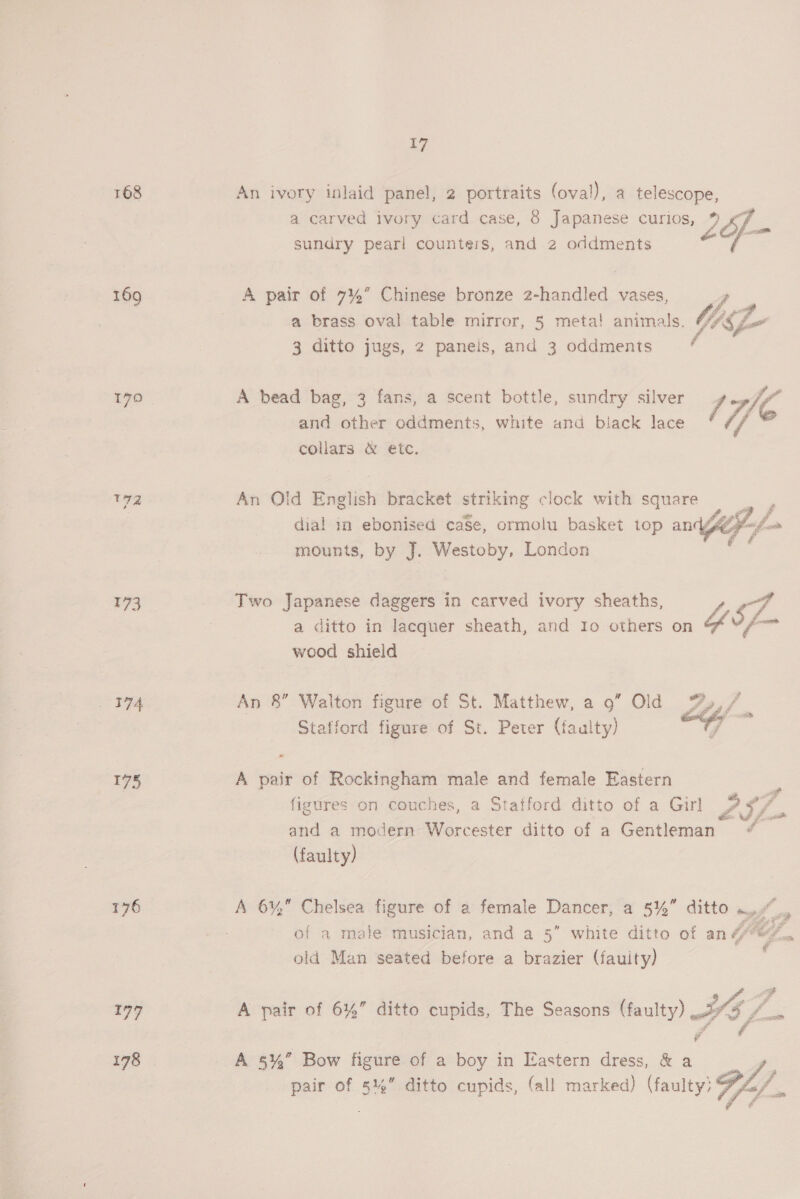 17
168 An ivory inlaid panel, 2 portraits (oval), a telescope,
a carved ivory card case, 8 Japanese curios,
sundry pearl counters, and 2 oddments
169 A pair of 7½" Chinese bronze 2-handled vases,
a brass oval table mirror, 5 metal animals.
3 ditto jugs, 2 panels, and 3 oddments
170 A bead bag, 3 fans, a scent bottle, sundry silver
and other oddments, white and black lace
collars & etc.
172 An Old English bracket striking clock with square
dial in ebonised case, ormolu basket top and
mounts, by J. Westoby, London
173 Two Japanese daggers in carved ivory sheaths,
a ditto in lacquer sheath, and 10 others on
wood shield
174 An 8" Walton figure of St. Matthew, a 9" Old
Stafford figure of St. Peter (faulty)
175 A pair of Rockingham male and female Eastern
figures on couches, a Stafford ditto of a Girl
and a modern Worcester ditto of a Gentleman
(faulty)
176 A 6½" Chelsea figure of a female Dancer, a 5½" ditto
of a male musician, and a 5" white ditto of an
old Man seated before a brazier (faulty)
177 A pair of 6½" ditto cupids, The Seasons (faulty)
178 A 5½" Bow figure of a boy in Eastern dress, & a
pair of 5½" ditto cupids, (all marked) (faulty)